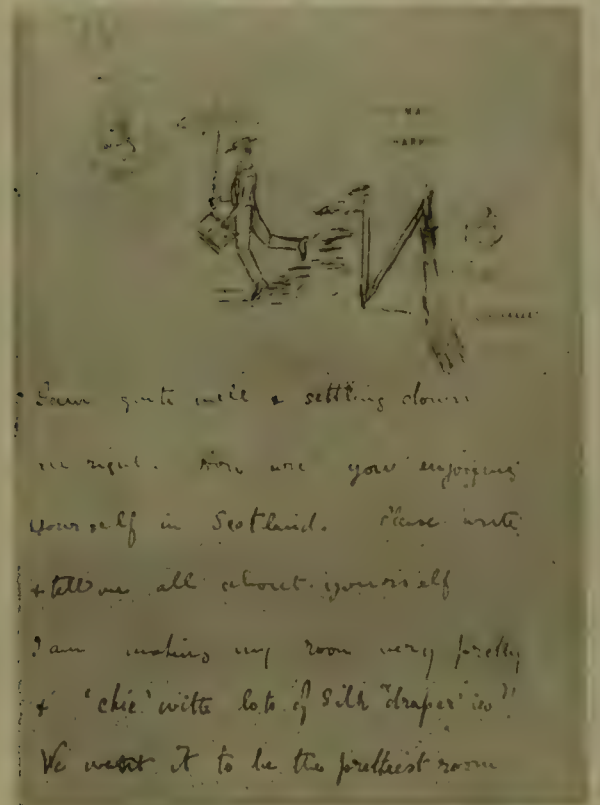 I am quite well & settling down
all right. How are you enjoying
yourself in Scotland. Please write
& tell me all about yourself
I am making my room very pretty
& 'chic' with lots of Silk "draper'ies"
We want it to be the prettiest room